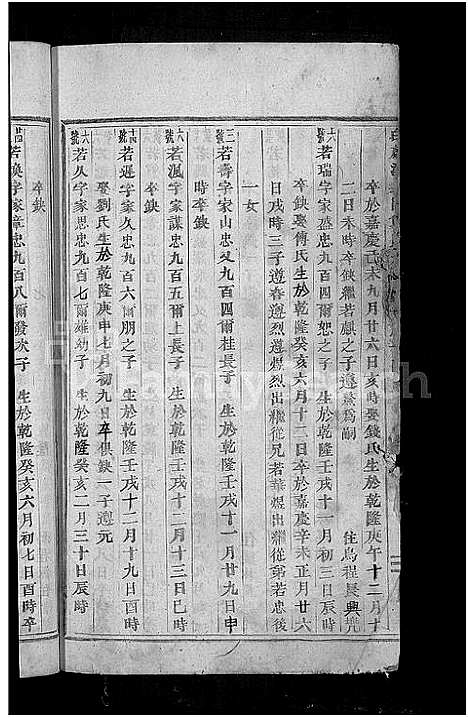 卒於嘉慶己未九月廿六日亥時娶錢氏生於乾隆庚午十二月十
二日未時卒俠繼若麒之子遵為嗣 住烏程晟典兠
六號若瑞字家盛忠九百四爾恕之子 生於乾隆壬戌十一月初三日辰時
卒缺娶傅氏生於乾隆癸亥六月十二日卒於嘉慶辛未正月廿六
日戌時三子遵春遵烈遵煜烈出繼從兄若華煜出繼從弟若忠後
一女
三號若壽字家山忠九百四爾桂長子 生於乾隆壬戌十一月廿九日申
時卒缺
六號若渢字家謀忠九百五爾上長子 生於乾隆壬戌十二月十三日巳時
卒缺
十四號若遲字家久忠九百六爾朋之子 生於乾隆壬戌十二月十九日酉時
娶劉氏生於乾隆庚申七月初九日卒俱缺一子遵元
六號若久字家思忠九百七爾雄幼子 生於乾隆癸亥二月三十日辰時
卒缺
十四若渙字家章忠九百八爾發次子 生於乾隆癸亥六月初七日酉時卒